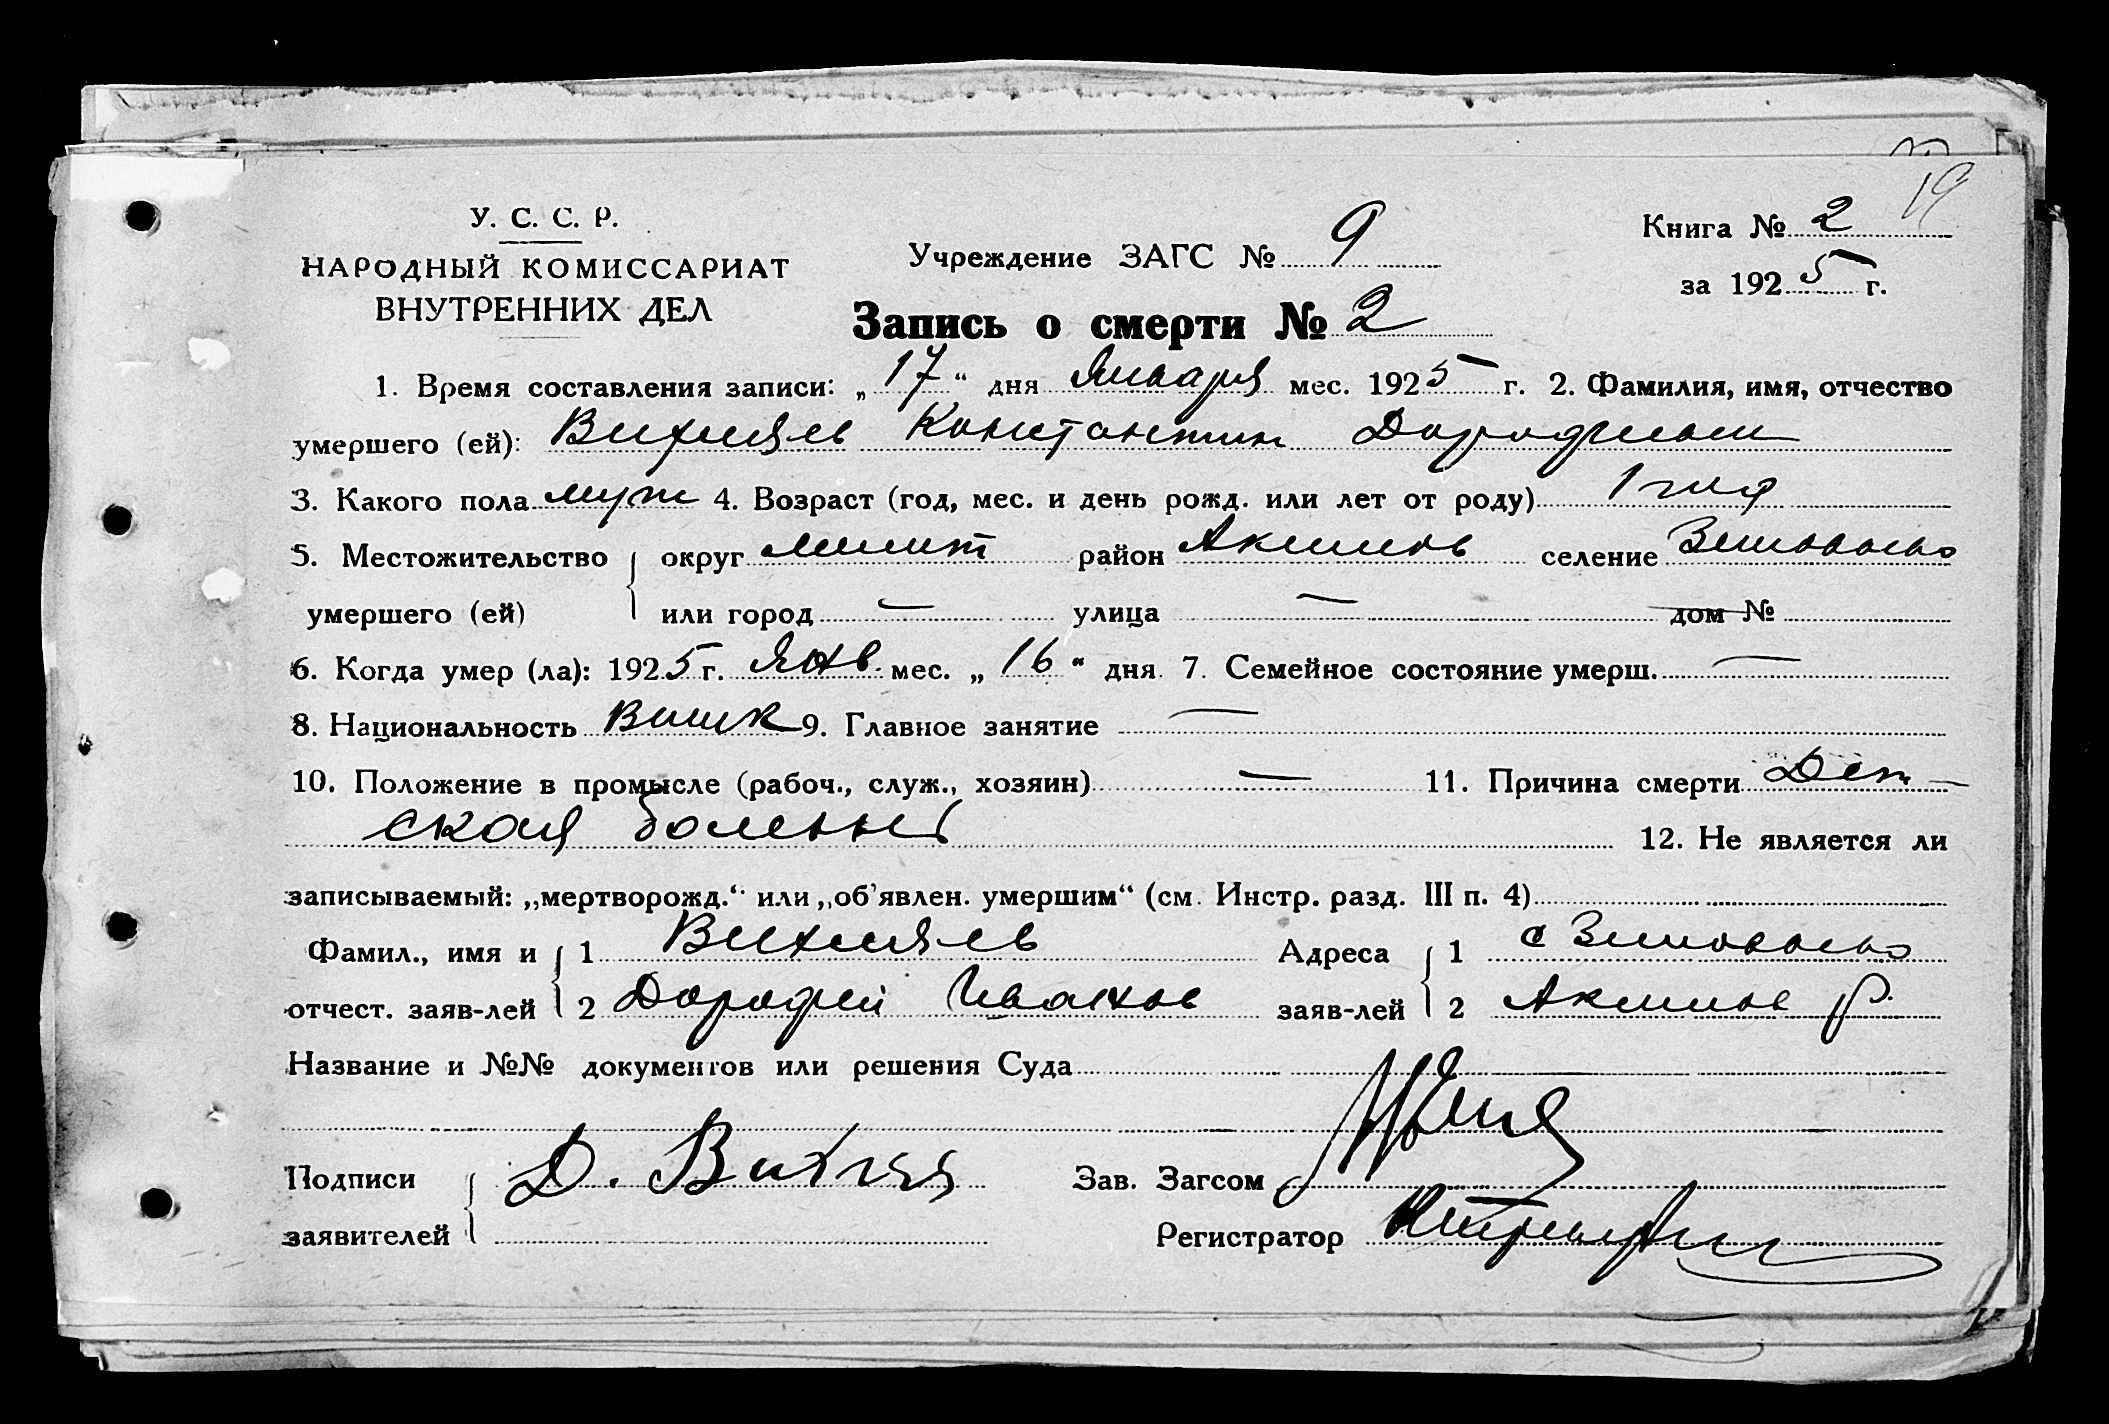 19
У. С. С. Р.
НАРОДНЫЙ КОМИССАРИАТ
ВНУТРЕННИХ ДЕЛ
Учреждение ЗАГС № 9
Книга № 2
за 1925 г.
Запись о смерти № 2
1. Время составления записи: „17“ дня Января мес. 1925 г. 2. Фамилия, имя, отчество
умершего (ей): Вихляев Константин
3. Какого пола муж 4. Возраст (год, мес. и день рожд. или лет от роду) 1 год
5. Местожительство округ Мелит район Акимов селение
умершего (ей) или город — улица — дом №
6. Когда умер (ла): 1925 г. Янв. мес. „16“ дня 7. Семейное состояние умерш. —
8. Национальность 9. Главное занятие —
10. Положение в промысле (рабоч., служ., хозяин) — 11. Причина смерти Дет-
ская болезнь 12. Не является ли
записываемый: „мертворожд.“ или „об'явлен. умершим“ (см. Инстр. разд. III п. 4)
Фамил., имя и 1 Вихляев Адреса 1 с
отчест. заяв-лей 2 Дорофей Иванов заяв-лей 2 Акимов р.
Название и №№ документов или решения Суда
Подписи Д. Зав. Загсом
заявителей Регистратор